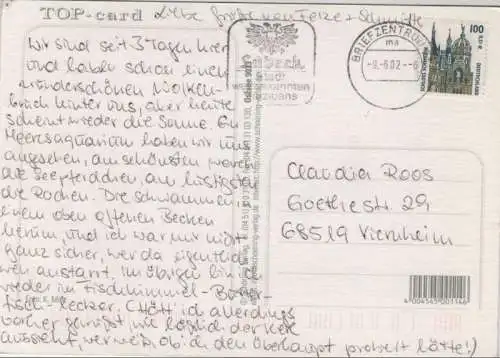 TOP-card
Liebe Grüße von Felze + Schmidtke
Wir sind seit 3 Tagen hier
und haben schon einen
wunderschönen Wolken-
bruch hinter uns, aber heute
scheint wieder die Sonne. Ein
Meeresaquarium haben wir uns
angesehen, am schönsten waren
die Seepferdchen, am lustigsten
die Rochen. Die schwammen in
einem oben offenen Becken
herum, und ich war mir nicht
ganz sicher, wer da eigentlich
wen anstarrt. Im übrigen bin ich
wieder im Fischhimmel - Butter-
fisch - lecker. (Hätt' ich allerdings
vorher gewußt, wie der Kerl
aussieht, wer weiß, ob ich den überhaupt probiert hätte!)
BRIEFZENTRUM
ma
-9.-6.02 -6
100
DEUTSCHLAND
SCHLOSS SCHWERIN
Claudia Roos
Goethestr. 29
68519 Viernheim
4 004545 001146